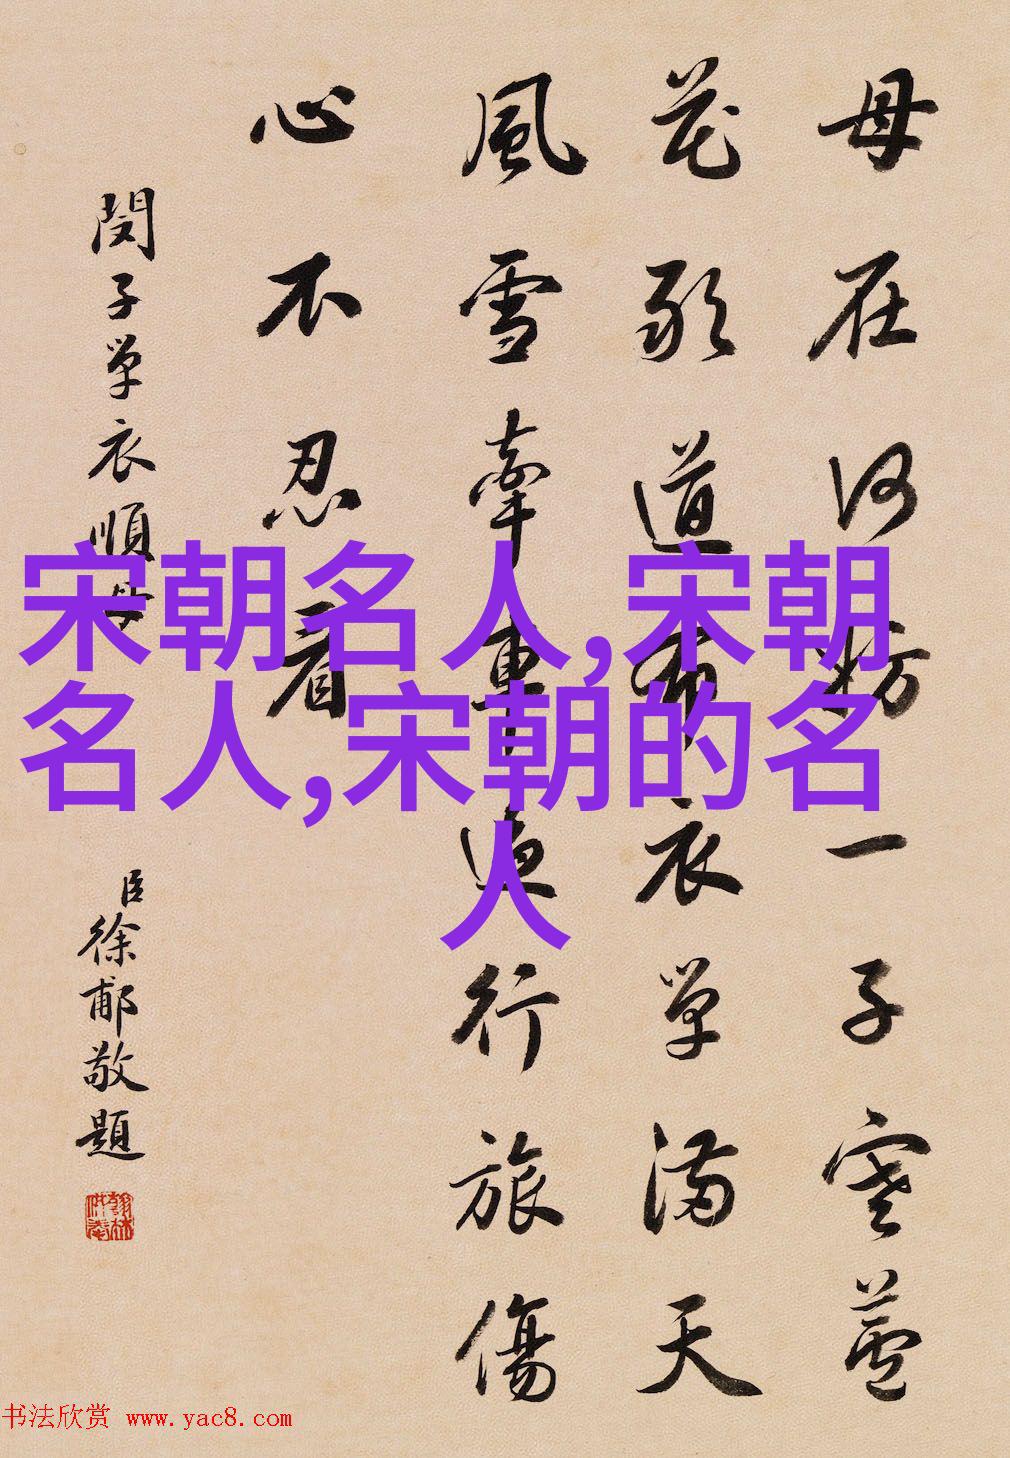 母在何妨一子寒蘆
花衣單滿天
風雪牽車行旅傷
心不忍看
閔子單衣順母
臣徐郙敬題
宋朝名人,宋朝
名人,宋朝的名
人
书法欣赏 www.yac8.com